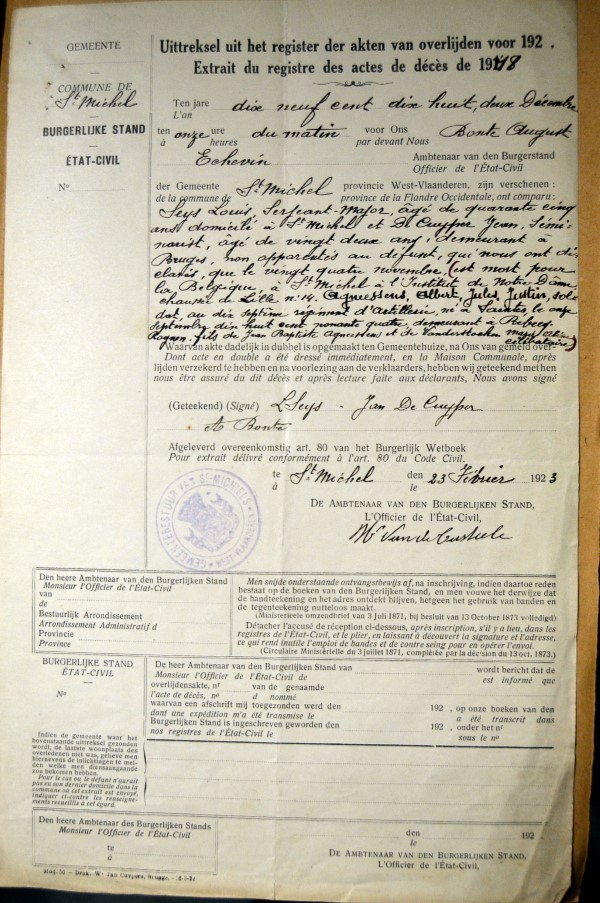 GEMEENTE
COMMUNE DE
St Michel
BURGERLIJKE STAND
ÉTAT-CIVIL
No
Uittreksel uit het register der akten van overlijden voor 192 .
Extrait du registre des actes de décès de 1918
Ten jare
L'an dix neuf cent dix huit, deux Décembre
ten onze ure du matin voor Ons Bonte August
à heures par devant Nous
Echevin Ambtenaar van den Burgerstand
Officier de l'État-Civil
der Gemeente St Michel provincie West-Vlaanderen, zijn verschenen :
de la commune de province de la Flandre Occidentale, ont comparu :
Seys Louis, Sergeant-Major, âgé de quarante cinq
ans domicilié à St Michel et De Cuyper Jean, Sémi-
narist, âgé de vingt deux ans, demeurant à
Bruges, non apparentés au défunt, qui nous ont dé-
clarés, que le vingt quatre novembre, (est mort pour
la Belgique, à St Michel à l'Institut de Notre Dame
chaussée de Lille n: 14. Agnessens, Albert, Jules, Justin, sol-
dat, au dix septième régiment d'Artillerie, né à le onze
Septembre dix huit cent nonante quatre demeurant à Rebecq
Rognon, fils de Jean Baptiste Agnessens et de Vanderstraeten
célibataire)
Waarvan akte dadelijk in dubbel is opgemaakt ten Gemeentehuize, na Ons van gemeld over-
Dont acte en double a été dressé immédiatement, en la Maison Communale, après
lijden verzekerd te hebben en na voorlezing aan de verklaarders, hebben wij geteekend met hen
nous être assuré du dit décès et après lecture faite aux déclarants, Nous avons signé
(Geteekend) (Signé) LSeys - Jan De Cuyper
A Bonte
Afgeleverd overeenkomstig art. 80 van het Burgerlijk Wetboek
Pour extrait délivré conformément à l'art. 80 du Code Civil.
te St Michel den 23 Février 1923
à le
DE AMBTENAAR VAN DEN BURGERLIJKEN STAND,
L'Officier de l'État-Civil,
GEMEENTEBESTUUR VAN ST-MICHIELS
WEST-VLAANDEREN
Den heere Ambtenaar van den Burgerlijken Stand
Monsieur l'Officier de l'État-Civil
van
de
Bestuurlijk Arrondissement
Arrondissement Administratif d
Provincie
Province
Men snijde onderstaande ontvangstbewijs af, na inschrijving, indien daartoe reden
bestaat op de boeken van den Burgerlijken Stand, en men vouwe het derwijze dat
de handteekening en het adres ontdekt blijven, hetgeen het gebruik van banden en
de tegenteekening nutteloos maakt.
(Ministerieele omzendbrief van 3 Juli 1871, bij besluit van 13 October 1873 volledigd)
Détacher l'accusé de réception ci-dessous, après inscription, s'il y a lieu, dans les
registres de l'État-Civil, et le plier, en laissant à découvert la signature et l'adresse,
ce qui rend inutile l'emploi de bandes et de contre seing pour en opérer l'envoi.
(Circulaire Ministérielle du 3 juillet 1871, complétée par la décision du 13 oct. 1873.)
BURGERLIJKE STAND
ÉTAT-CIVIL
No
De heer Ambtenaar van den Burgerlijken Stand van wordt bericht dat de
Monsieur l'Officier de l'État-Civil de est informé que
overlijdensakte, nr van de genaamde
l'acte de décès, no d nommé
waarvan een afschrift mij toegezonden werd den 192 , op onze boeken van den
dont une expédition m'a été transmise le a été transcrit dans
Burgerlijken Stand is ingeschreven geworden den 192 , onder het nr
nos registres de l'État-Civil le sous le no
Indien de gemeente waar het
bovenstaande uittreksel gezonden
wordt, de laatste woonplaats des
overledenen niet was, gelieve men
hiernevens de inlichtingen te mel-
den welke men dienaangaande
zou bekomen hebben.
Pour le cas où le défunt n'aurait
pas eu son dernier domicile dans la
commune où cet extrait est envoyé,
indiquer ci-contre les renseigne-
ments recueillis à cet égard.
Den heere Ambtenaar des Burgerlijken Stands
Monsieur l'Officier de l'État-Civil
te
à
den 192
le
DE AMBTENAAR VAN DEN BURGERLIJKEN STAND,
L'Officier de l'État-Civil,